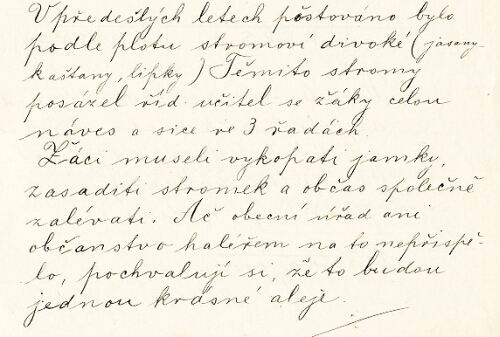 V předešlých letech pěstováno bylo
podle plotu stromoví divoké (jasany-
kaštany, lipky) Těmito stromy
posázel říd. učitel se žáky celou
náves a sice ve 3 řadách.
Žáci museli vykopati jamky,
zasaditi stromek a občas společně
zalévati. Ač obecní úřad ani
občanstvo haléřem na to nepřispě-
lo, pochvalují si, že to budou
jednou krásné aleje.